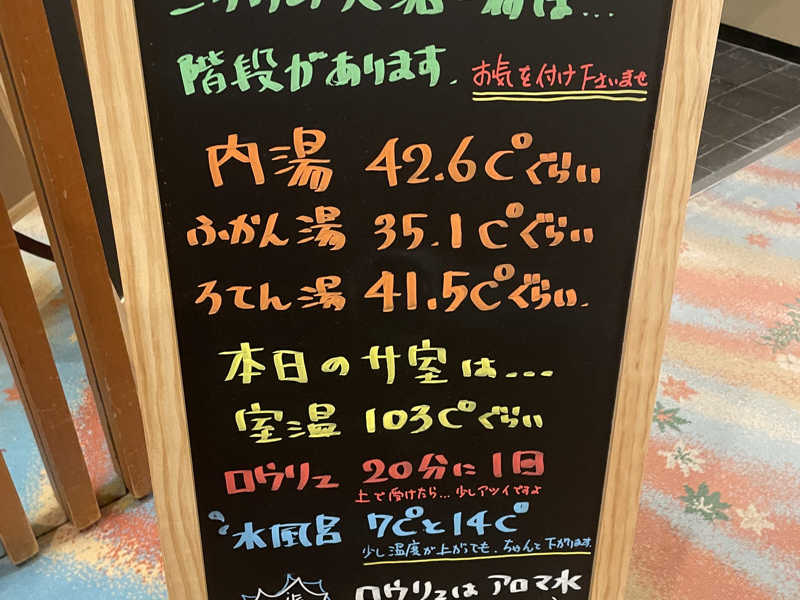 階段があります. お気を付け下さいませ
内湯 42.6℃ぐらい
ふかん湯 35.1℃ぐらい
ろてん湯 41.5℃ぐらい.
本日のサ室は...
室温 103℃ぐらい
ロウリュ 20分に1回
上で受けたら... 少しアツイですよ
水風呂 7℃と14℃
少し温度が上がっても、ちゃんと下がります
ロウリュはアロマ水